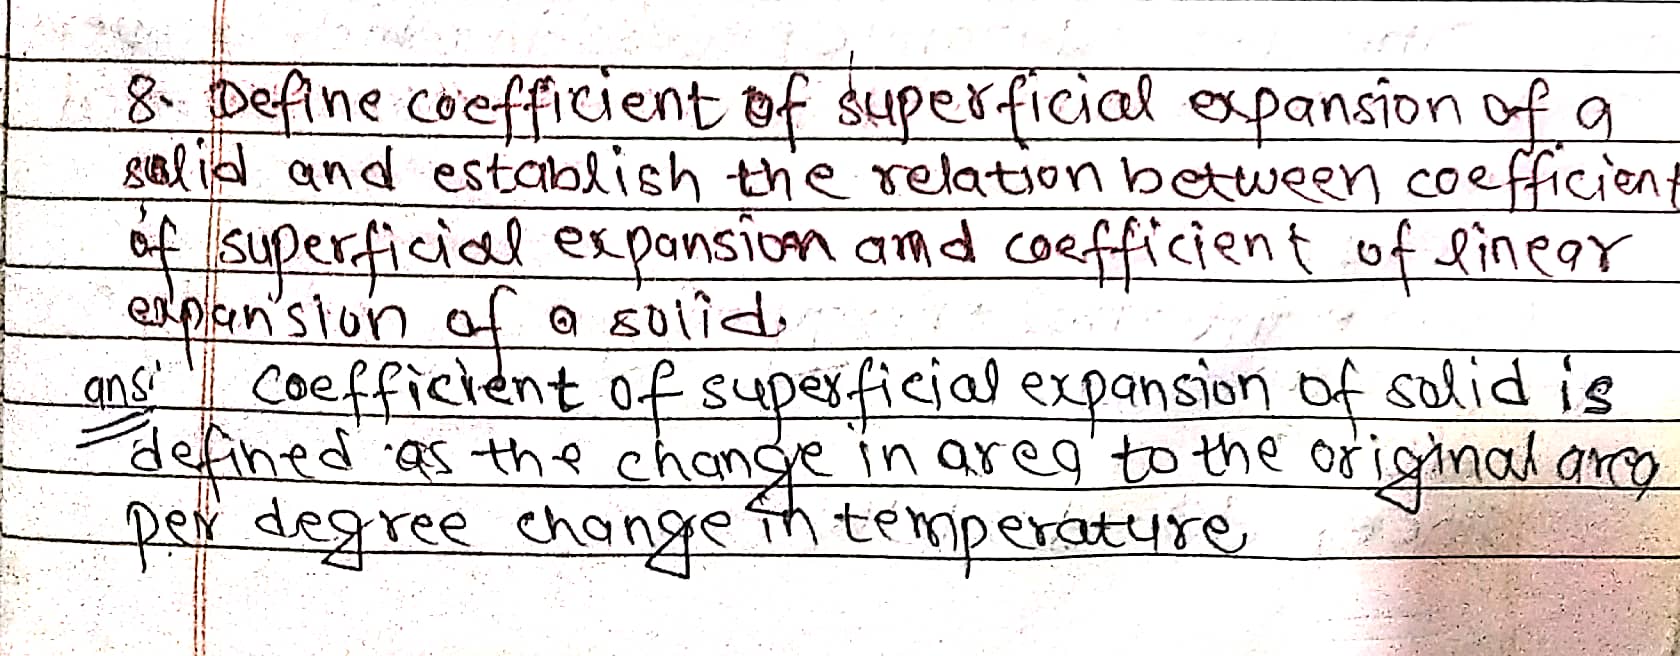 8. Define coefficient of superficial expansion of a
solid and establish the relation between coefficient
of superficial expansion and coefficient of linear
expansion of a solid.
ans: Coefficient of superficial expansion of solid is
defined as the change in area to the original area
per degree change in temperature